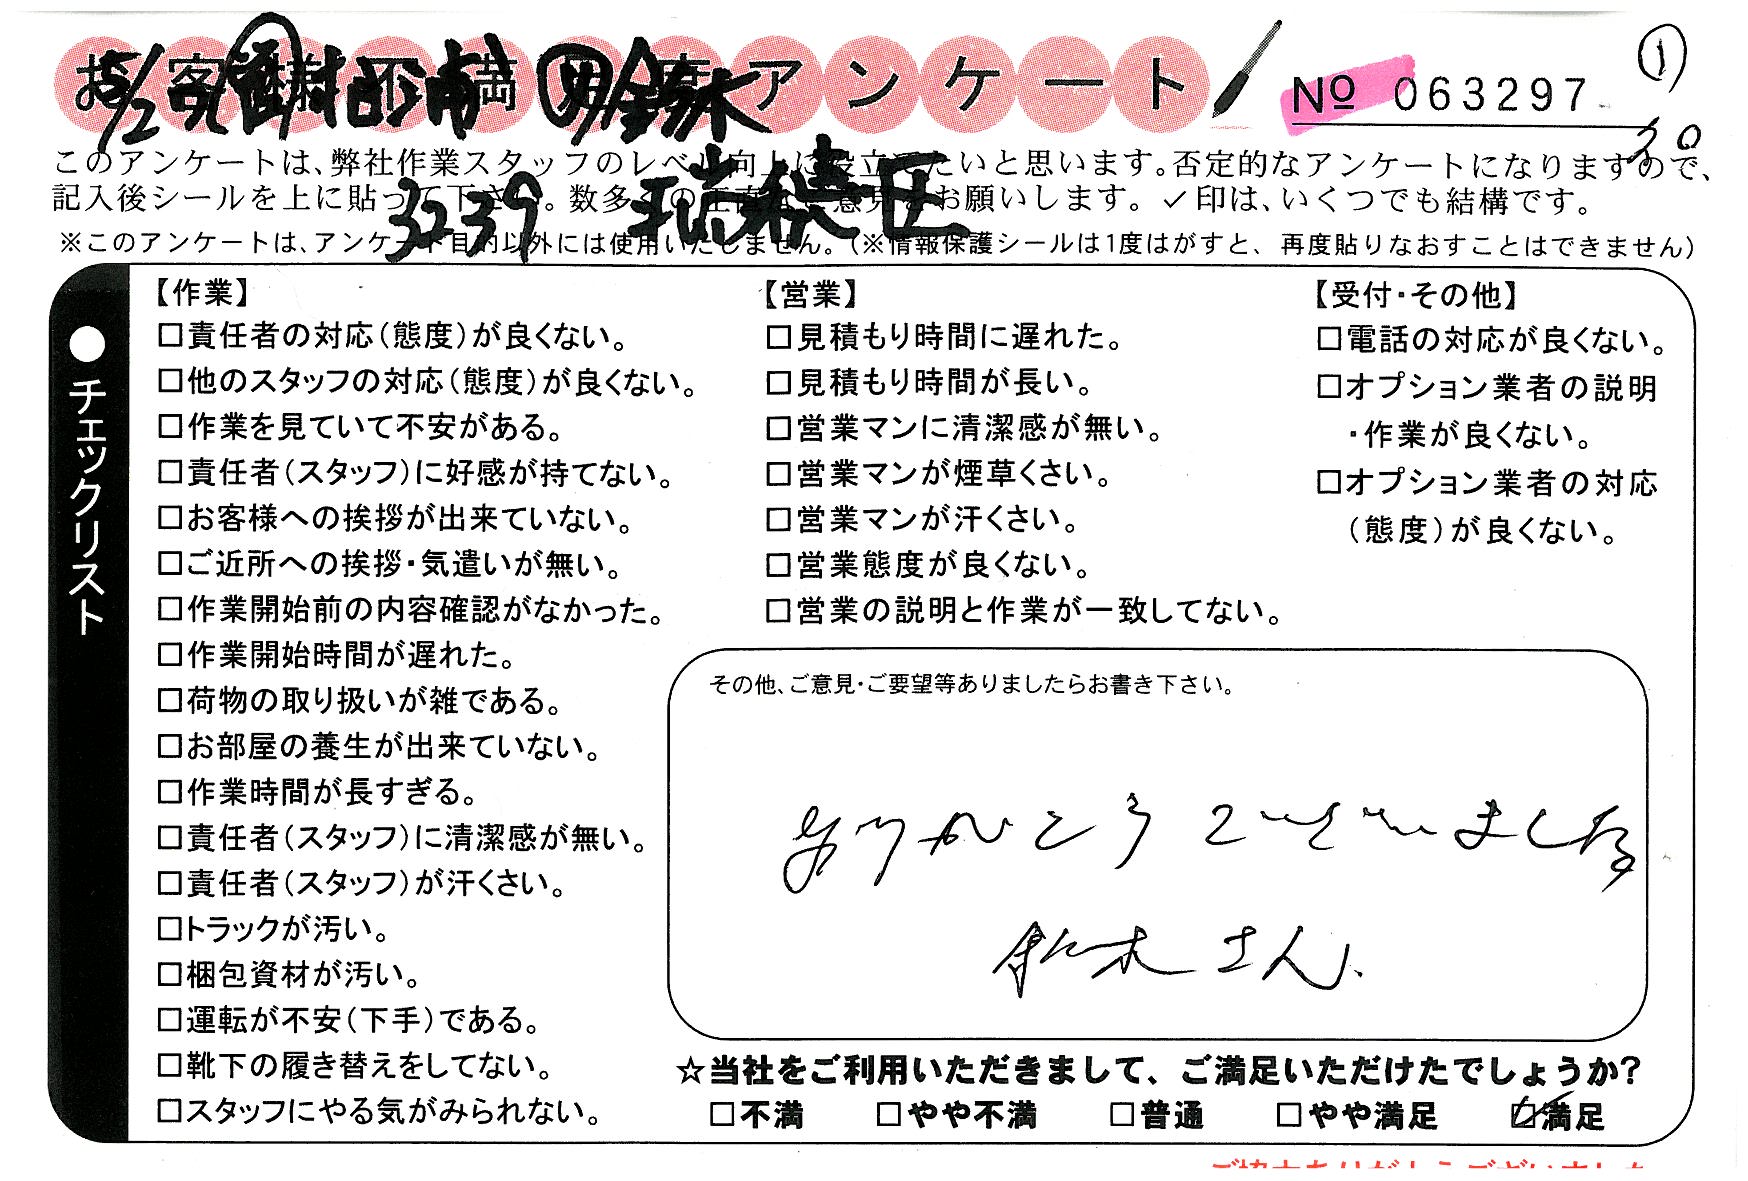 お客様不満足度アンケート
No 063297
①
20
このアンケートは、弊社作業スタッフのレベル向上に役立てたいと思います。否定的なアンケートになりますので、
記入後シールを上に貼って下さい。数多くの正直なご意見をお願いします。✓印は、いくつでも結構です。
3239 瑞穂区
※このアンケートは、アンケート目的以外には使用いたしません。(※情報保護シールは1度はがすと、再度貼りなおすことはできません)
●チェックリスト
【作業】
□責任者の対応(態度)が良くない。
□他のスタッフの対応(態度)が良くない。
□作業を見ていて不安がある。
□責任者(スタッフ)に好感が持てない。
□お客様への挨拶が出来ていない。
□ご近所への挨拶・気遣いが無い。
□作業開始前の内容確認がなかった。
□作業開始時間が遅れた。
□荷物の取り扱いが雑である。
□お部屋の養生が出来ていない。
□作業時間が長すぎる。
□責任者(スタッフ)に清潔感が無い。
□責任者(スタッフ)が汗くさい。
□トラックが汚い。
□梱包資材が汚い。
□運転が不安(下手)である。
□靴下の履き替えをしてない。
□スタッフにやる気がみられない。
【営業】
□見積もり時間に遅れた。
□見積もり時間が長い。
□営業マンに清潔感が無い。
□営業マンが煙草くさい。
□営業マンが汗くさい。
□営業態度が良くない。
□営業の説明と作業が一致してない。
【受付・その他】
□電話の対応が良くない。
□オプション業者の説明
・作業が良くない。
□オプション業者の対応
(態度)が良くない。
その他、ご意見・ご要望等ありましたらお書き下さい。
ありがとうございました
鈴木さん.
☆当社をご利用いただきまして、ご満足いただけたでしょうか?
□不満 □やや不満 □普通 □やや満足 ☑満足
ご協力ありがとうございました